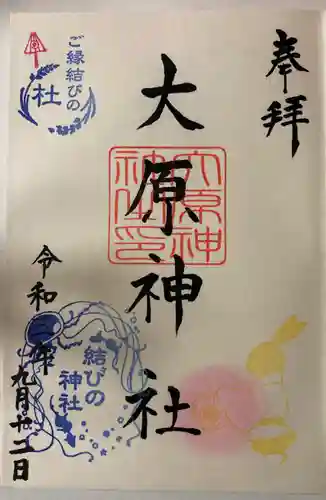 奉拝
大原神社
大原神社印
ご縁結びの
社
結びの
神社
令和二年九月廿二日